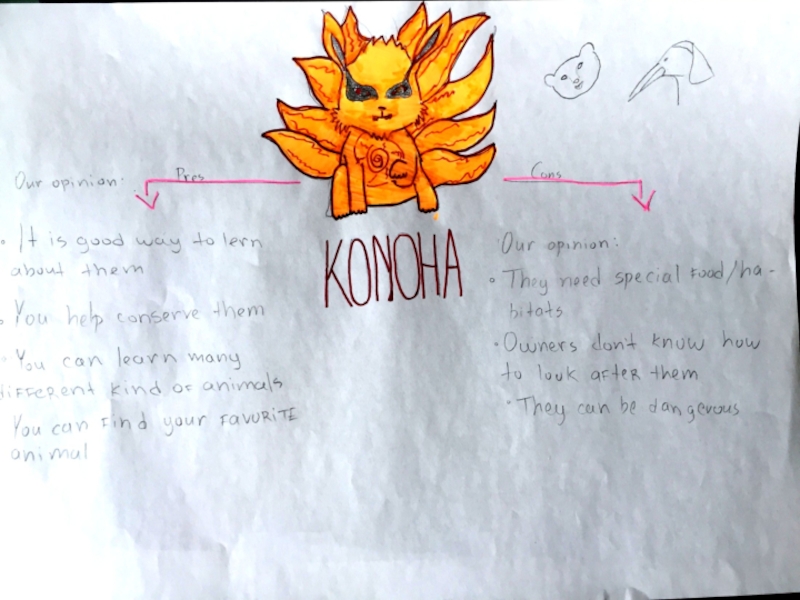 KONOHA
Pres
Our opinion:
• It is good way to lern
about them
• You help conserve them
• You can learn many
different kind of animals
You can find your favorite
animal
Cans
Our opinion:
• They need special food/ha-
bitats
• Owners don't know how
to look after them
• They can be dangerous